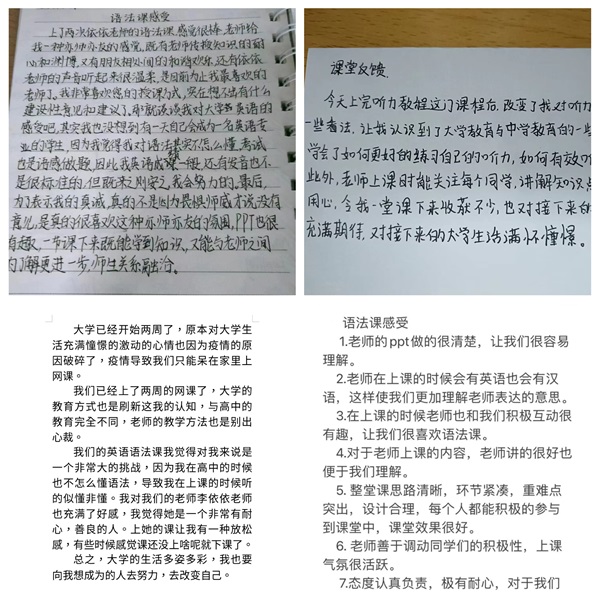 语法课感受
上了两次依依老师的语法课,感觉很棒,老师给
我一种亦师亦友的感觉,既有老师传授知识的耐
心和渊博,又有朋友相处间的和谐欢乐,还有依依
老师的声音听起来很温柔,是目前为止我最喜欢的
老师了。我非常喜欢您的授课方式,实在想不出有什么
建设性意见和建议了,那就谈谈我对大学英语的
感受吧,其实我也没想到有一天自己会成为一名英语专
业的学生,因为我觉得我对语法其实不怎么懂,考试
也是语感做题,因此我英语成绩一般,还有发音也不
是很标准的,但既来之则安之,我会努力的。最后,
为了表示我的真诚,真的不是因为畏惧师威才说没有
意见,是真的很喜欢这种亦师亦友的氛围,PPT也很
有趣,一节课下来既能学到知识,又能与老师之间
的了解更进一步,师生关系融洽。
课堂反馈
今天上完听力教程这门课程后,改变了我对听力
一些看法,让我认识到了大学教育与中学教育的一些
学会了如何更好的练习自己的听力,如何有效的
此外,老师上课时能关注每个同学,讲解知识点
用心,令我一堂课下来收获不少,也对接下来的
充满期待,对接下来的大学生活满怀憧憬。
大学已经开始两周了,原本对大学生
活充满憧憬的激动的心情也因为疫情的原
因破碎了,疫情导致我们只能呆在家里上
网课。
我们已经上了两周的网课了,大学的
教育方式也是刷新这我的认知,与高中的
教育完全不同,老师的教学方法也是别出
心裁。
我们的英语语法课我觉得对我来说是
一个非常大的挑战,因为我在高中的时候
也不怎么懂语法,导致我在上课的时候听
的似懂非懂。我对我们的老师李依依老师
也充满了好感,我觉得她是一个非常有耐
心,善良的人。上她的课让我有一种放松
感,有些时候感觉课还没上啥呢就下课了。
总之,大学的生活多姿多彩,我也要
向我想成为的人去努力,去改变自己。
语法课感受
1.老师的ppt做的很清楚,让我们很容易
理解。
2.老师在上课的时候会有英语也会有汉
语,这样使我们更加理解老师表达的意思。
3.在上课的时候老师也和我们积极互动很
有趣,让我们很喜欢语法课。
4.对于老师上课的内容,老师讲的很好也
便于我们理解。
5. 整堂课思路清晰,环节紧凑,重难点
突出,设计合理,每个人都能积极的参与
到课堂中,课堂效果很好。
6. 老师善于调动同学们的积极性,上课
气氛很活跃。
7.态度认真负责,极有耐心,对于我们